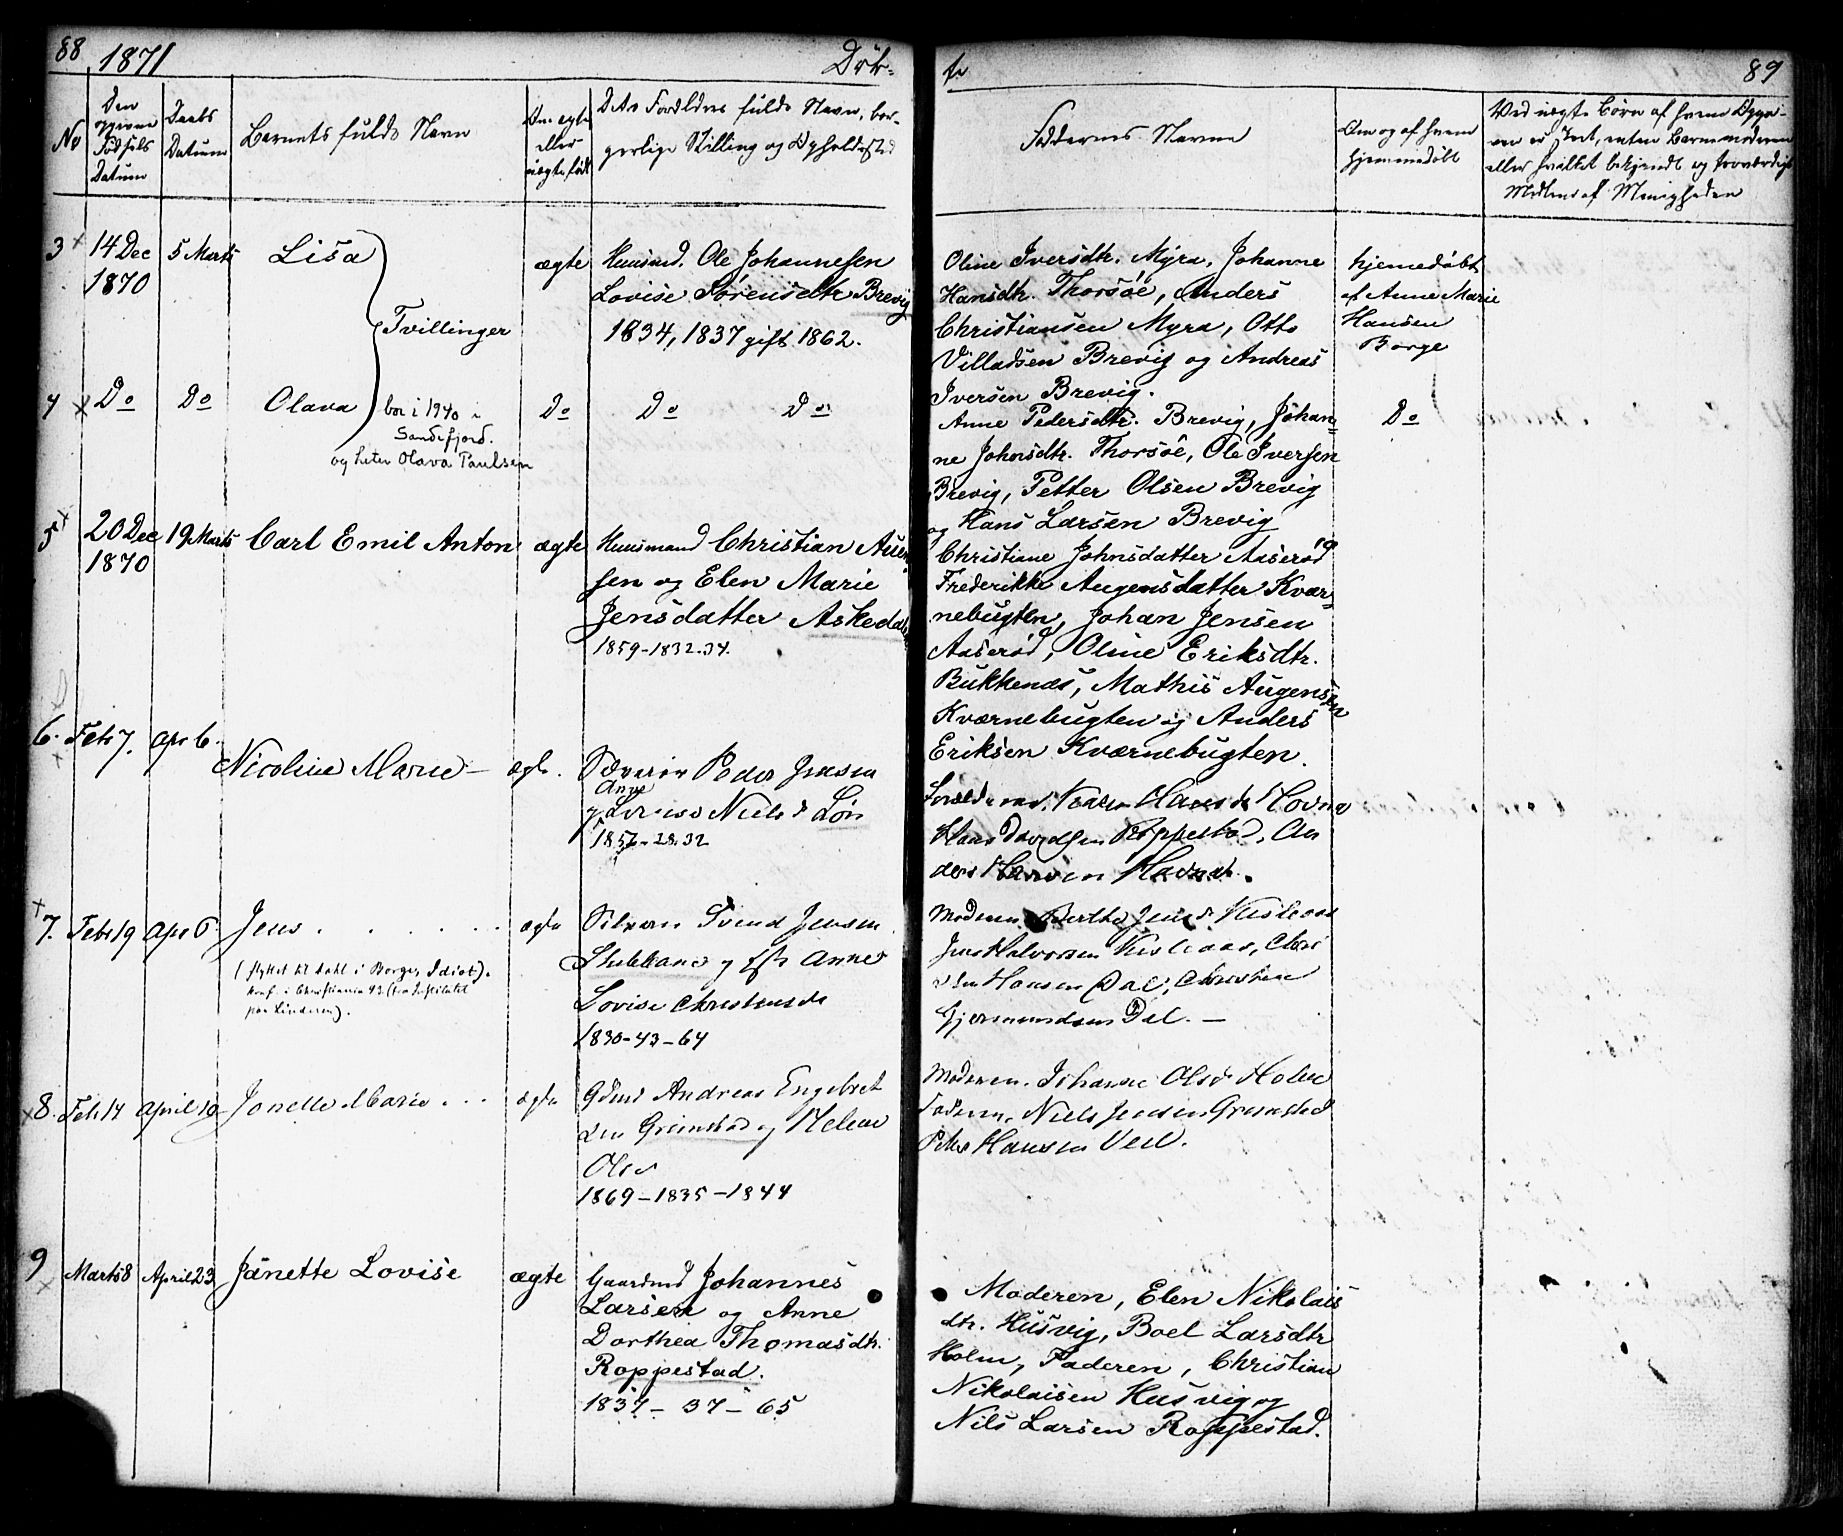 88 1871 Döb-
No
Den
Fødsels
Datum
Daabs
Datum
Barnets fulde Navn
Om ægte
eller
uægte født
Forældres fulde Navn, bor-
gerlige Stilling og Opholdssted
3 14 Dec 5 Marts Lisa ægte Huusmd. Ole Johannesen
1870 Lovise Sörensdtr Brevig
Tvillinger 1834, 1837 gift 1862.
4 Do Do Olava Do Do Do
bor i 1940 i
Sandefjord.
og heter Olava Paulsen
5 20 Dec 19 Marts Carl Emil Anton ægte Huusmand Christian
1870 sen og Elen Marie
Jensdatter Askedal
1859-1832.34.
6. Febr 7. Apr 6. Nicoline Marie ægte. Peder Jensen
Anne
Niels d
28.32
7. Febr 19 Apr 6 Jens ægte Svend Jensen
Stubbane og Anne
(flyttet til Dahl i Borge, Idiot).
Konf. i Christiania 93 (fra Institutet
paa Linderen).
Lovise Christensdr
1830-43-64
8. Feb 14 April 10 Marie ægte Andreas Engebret
sen Grimstad og Helene
Olsd
1869-1835-1844
9 Marts 8 April 23 Janette Lovise ægte Gaardmd Johannes
Larsen og Anne
Dorthea Thomasdtr.
Roppestad.
37-65
89
Faddernes Navne
Om og af hvem
hjemmedöbt
Ved uægte Börn af hvem Opga-
ven er skeet, enten Barnemoderen
eller hvilket bekjendt og troværdigt
Medlem af Menigheden
Oline Iversdtr. Myra, Johanne
Hansdtr. Thorsöe, Anders
Christiansen Myra, Otto
Villadsen Brevig og Andreas
Iversen Brevig.
hjemedöbt
af Anne Marie
Hansen
Borge
Anne Pedersdtr. Brevig, Johan-
ne Johnsdtr. Thorsöe, Ole Iversen
Brevig, Petter Olsen Brevig
og Hans Larsen Brevig
Do
Christiane Johnsdatter Aaseröd
Frederikke Augensdatter Kvær-
nebugten, Johan Jensen
Aaseröd, Oline Eriksdtr.
Bukkenæs, Mathis Augensen
Kværnebugten og Anders
Eriksen Kværnebugten.
Hans Roppestad, An
ders Hansen
Moderen Berthe Jensd
Jens Halvorsen
Hansen Dal, Christen
Gjermundsen Dal.
Moderen. Johanne Olsd Holm
Faderen, Niels Jensen Grimstad
Peter Hansen
Moderen, Elen Nikolais
dtr. Husvig, Boel Larsdtr
Holm, Faderen, Christian
Nikolaisen Husvig og
Nils Larsen Roppestad.